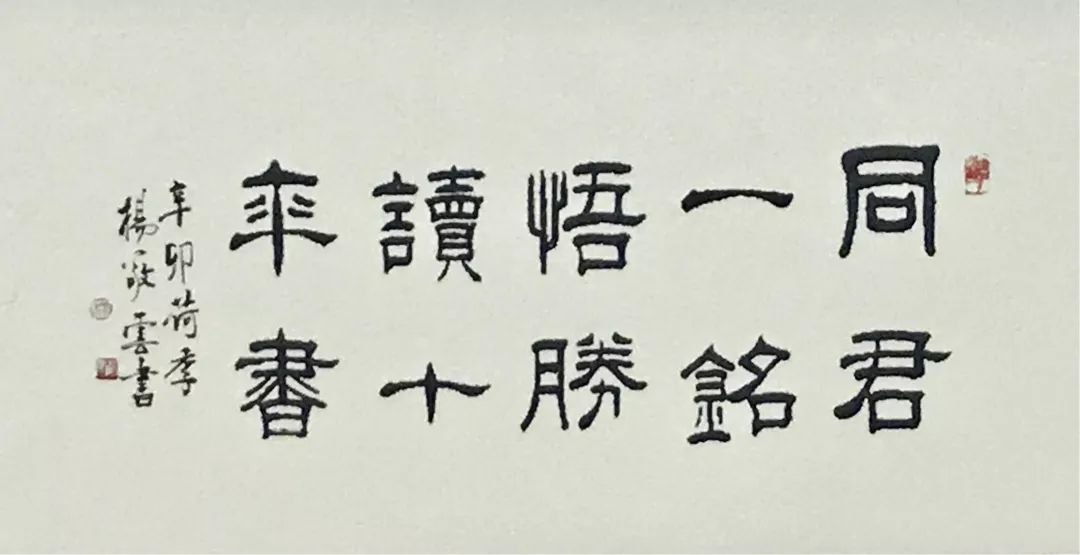 同君
一銘
悟勝
讀十
年書
辛卯荷季
楊敬雲書